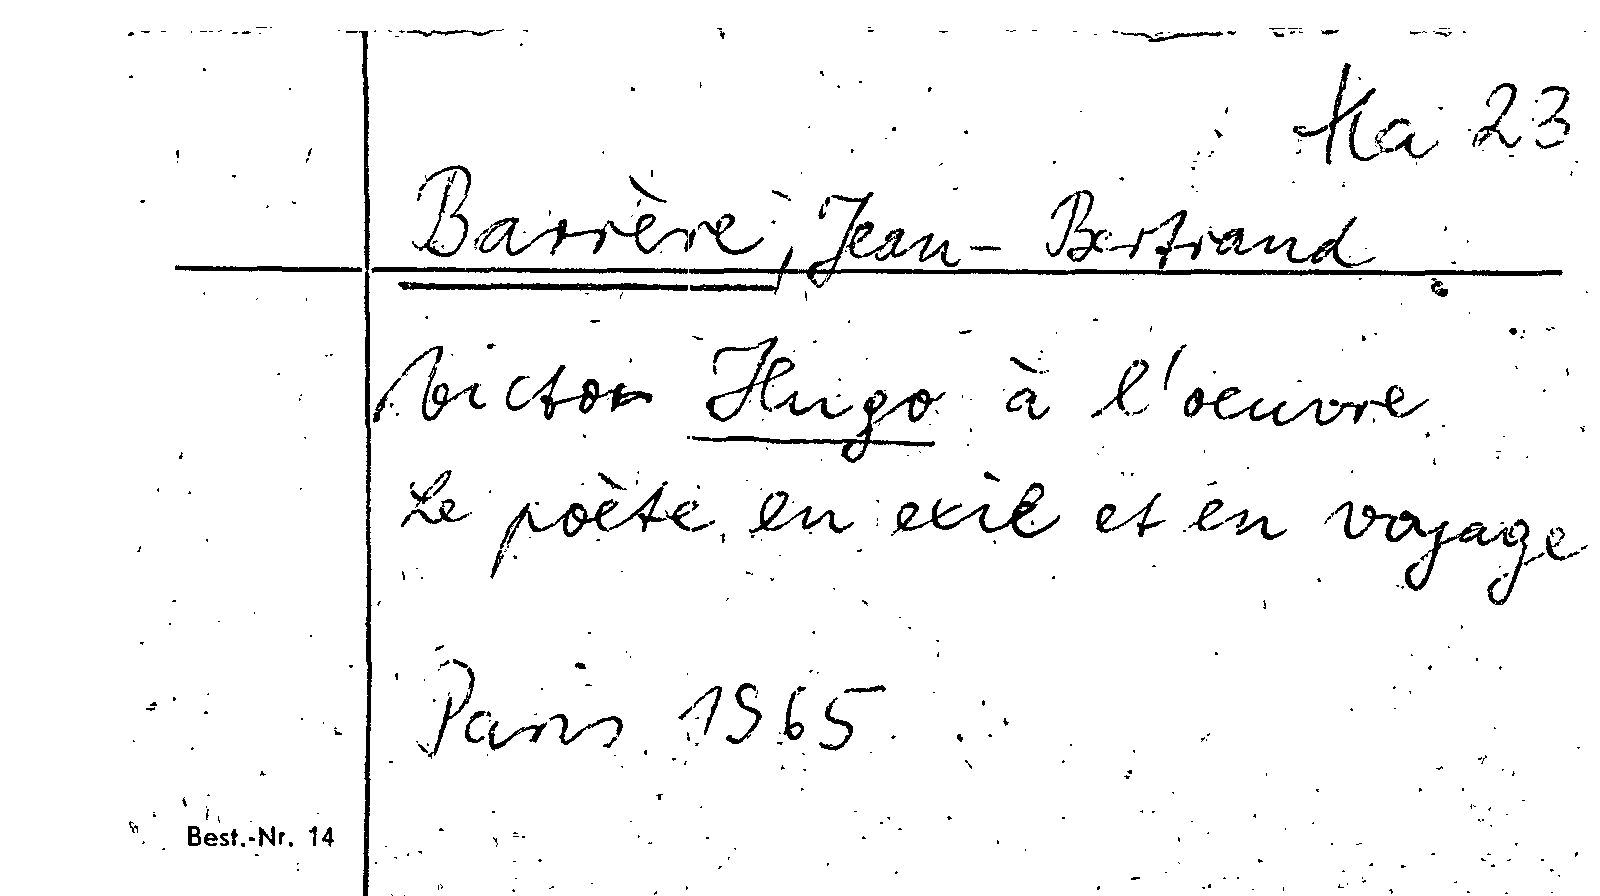 Ha 23
Barrère, Jean-Bertrand
Victor Hugo à l'oeuvre
Le poète en exil et en voyage
Paris 1965
Best.-Nr. 14